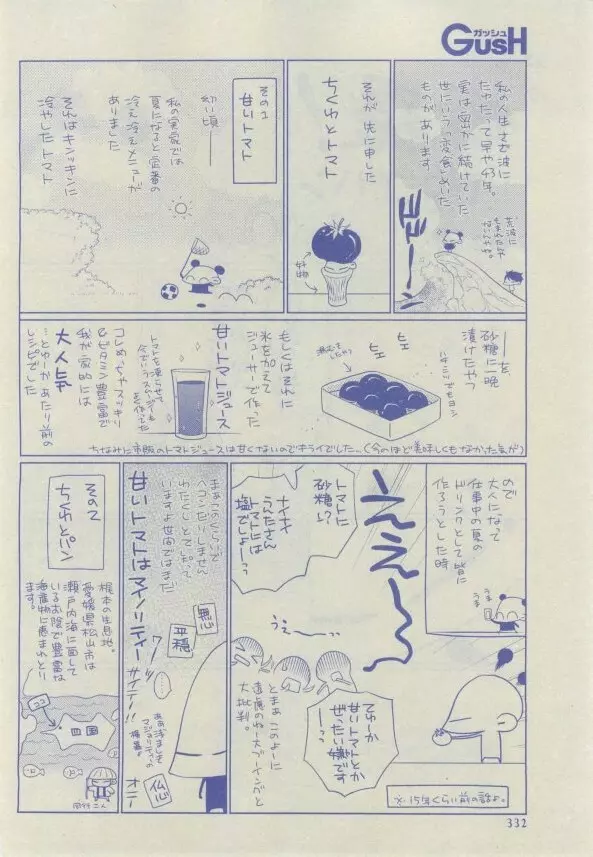 ガッシュ
GUSH
私の人生さざ波に
たゆたって早や43年。
実は密かに続けていた
世にいうっ変食とめいた
ものがあります
荒波に
もまれた訳で
ないんやね。
ザザーン
それが 先に申した
ちくわとトマト
好物
その1
甘いトマト
幼い頃――
私の実家では
夏になると定番の
冷え冷えメニューが
ありました
それはキンッキンに
冷やしたトマト
――を、
砂糖に一晩
漬けたやつ
ハチミツでもヨシ
ヒエ
ヒエ
もしくはそれに
氷を加えて
ジューサーで作った
甘いトマトジュース
トマトを凍らせて、
今でいうスムージーも
を作ってた
コレめっちゃスッキリ
&ビタミン豊富で
我が家的には
大人気
…とゆかあたり前の
レシピでした
ちなみに市販のトマトジュースは甘くないのでキライでした…(今のほど美味しくもなかった気が)
ので
大人になって
仕事中の夏の
ドリンクとして皆に
作ろうとした時
うま
うま
ええ〜〜っ
トマトに
砂糖ゥ?
ナイナイ
うんたさん
トマトには
塩でしょーっっ
うぇ〜〜っ
てゆーか
甘いトマトとか
ぜったい嫌です
――っっ
とまぁ このよーに
遠慮のねー大ブーイングと
大批判。
※15年くらい前の話よ。
まぁこのくらいで
ヘコンだりしません
わたくしとて、だって
いますよ世間ではまだ
甘いトマトはマイノリティー
サイテー!!
無心
平穏
仏心
オニー
その2
ちくわとパン
梶本の生息地。
愛媛県松山市は
瀬戸内海に面して
いるお陰で豊富な
海産物に恵まれとり
ます。
ココ
四国
332